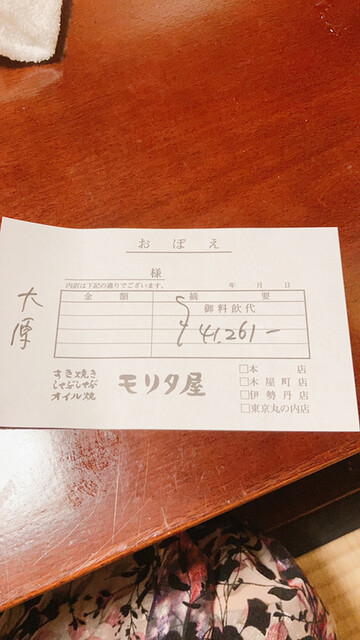 おぼえ
様
内訳は下記の通りでございます。 年 月 日
金額 摘要
御料飲代
41,261-
大原
すき焼き
しゃぶしゃぶ
オイル焼
モリタ屋
□本店
□木屋町店
□伊勢丹店
□東京丸の内店